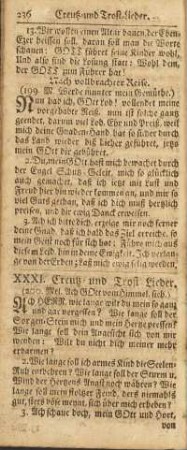 236 Creutz- und Trost-Lieder.
13. Wir wollen einen Altar bauen, der Eben-
Ezer heissen soll, daran soll man die Worte
schauen: GOTT führet seine Kinder wohl.
Und also sind die Losung statt: Wohl dem,
der GOTT zum Führer hat!
Nach vollbrachter Reise.
(199. M. Werde munter mein Gemüthe.)
Nun bad ich, GOtt Lob! vollendet meine
vorgehabte Reis. nun ist sie gantz
geendet, darum mit Lob, Ehr und Preiß, weil
mich deine Gnaden-Hand hat so sicher durch
das Land wieder bis hieher geführet, jetzt
mein GOtt die gebühret.
2. Du, mein GOtt, hast mich bewachet durch
der Engel Schutz-Geleit, mich so glücklich
auch gemachet, daß ich jetzt mit Lust und
Freud bin hier wieder kommen an, und mir so
viel Guts gethan, daß ich dich muß hertzlich
preisen, und dir ewig Danck erweisen.
3. Ach ich bitte dich, erzeige mir noch ferner
deine Gnad, daß ich bald das Ziel erreiche, so
mein Geist noch für sich hat: Führe mich aus
diesem Leid, hin in deine Ewigkeit. Ich verlan-
ge von der Erden; laß mich ewig selig werden.
XXXI. Creutz- und Trost Lieder.
(200. Mel. Ach GOtt vom Himmel, sieh.)
Ach HErr, wie lange wilt du mein so gantz
und gar vergessen? Wie lange soll der
Sorgen-Stein mich und mein Hertze pressen?
Wie lange soll dein Angesicht sich von mir
wenden? Wilt du dich nicht deiner mehr
erbarmen?
2. Wie lange soll ich armes Kind die Seelen-
Ruh entbehren? Wie lange soll der Sturm u.
Wind der Hertzens Angst noch währen? Wie
lange soll mein stoltzer Feind, ders niemahls
gut, stets böse meynt, sich über mich erheben?
3. Ach schaue doch, mein GOtt und Hort,
von